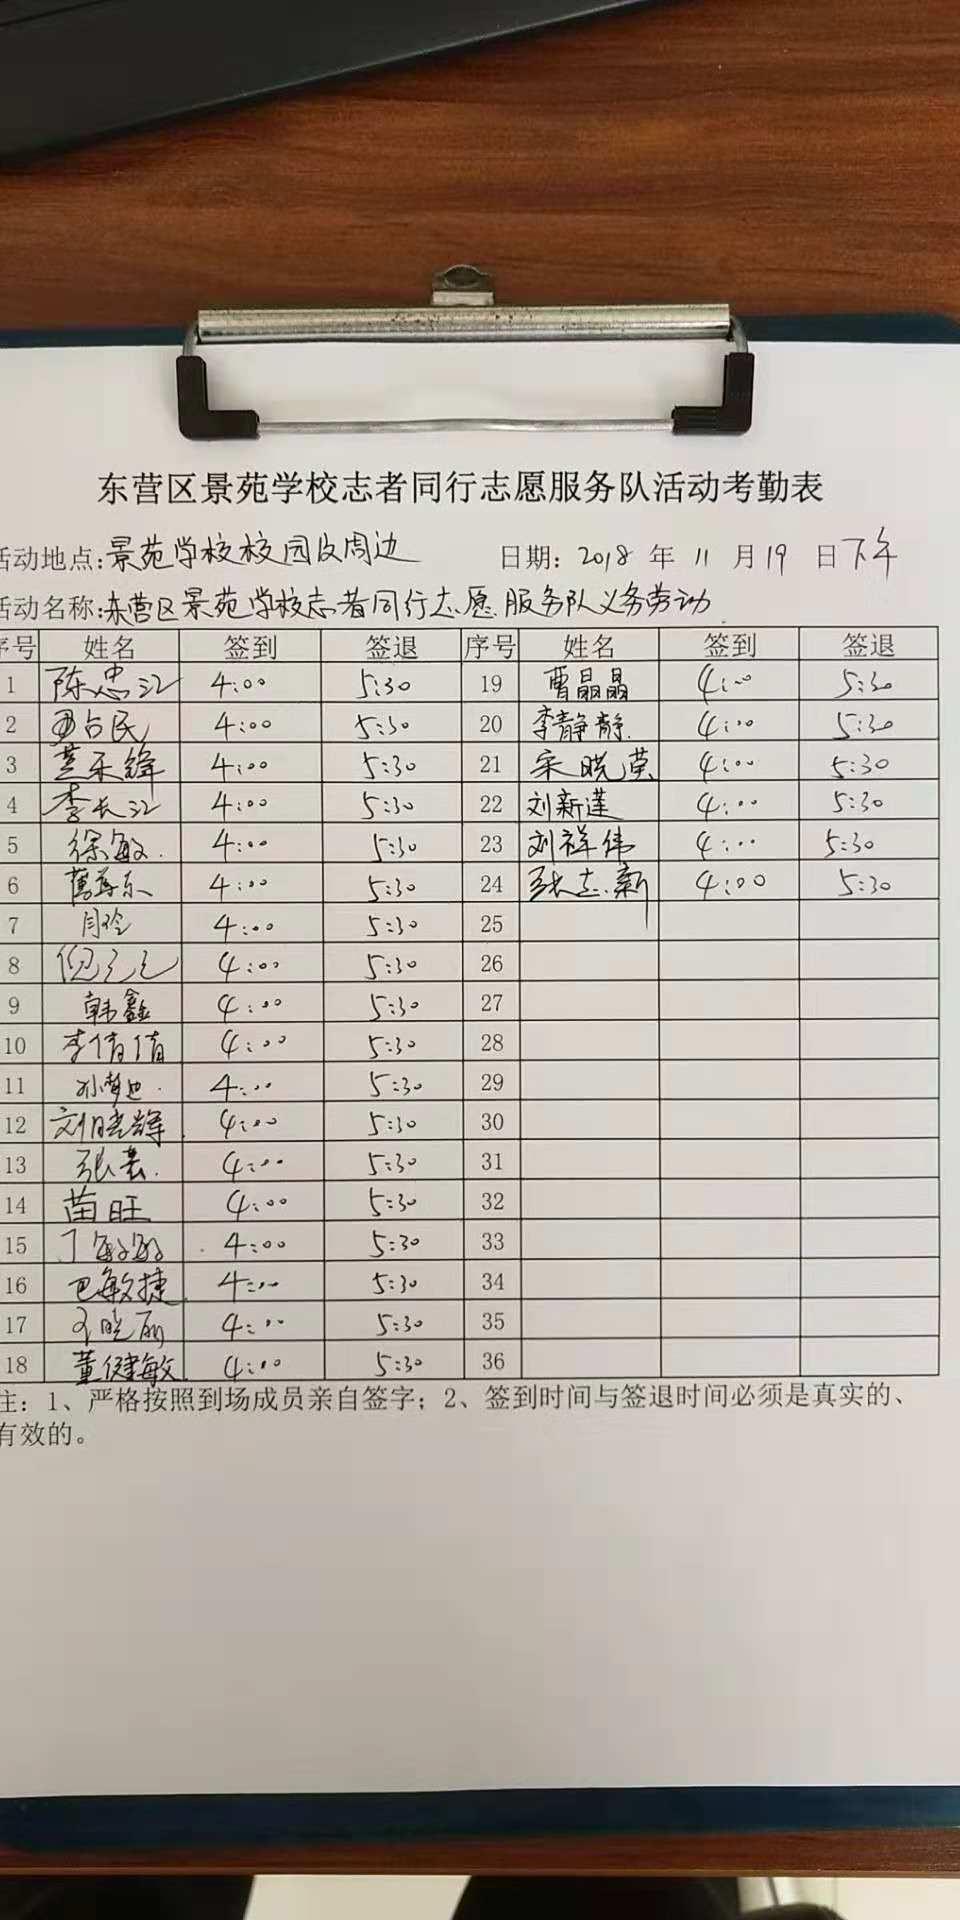 东营区景苑学校志者同行志愿服务队活动考勤表
活动地点:景苑学校校园及周边 日期: 2018 年 11 月 19 日下午
活动名称:东营区景苑学校志者同行志愿服务队义务劳动
序号 姓名 签到 签退 序号 姓名 签到 签退
1 陈忠江 4:00 5:30 19 曹晶晶 4:00 5:30
2 占民 4:00 5:30 20 李静静 4:00 5:30
3 4:00 5:30 21 宋晓英 4:00 5:30
4 李长江 4:00 5:30 22 刘新莲 4:00 5:30
5 徐敏 4:00 5:30 23 刘祥伟 4:00 5:30
6 4:00 5:30 24 张志新 4:00 5:30
7 4:00 5:30 25
8 倪 4:00 5:30 26
9 韩鑫 4:00 5:30 27
10 李倩倩 4:00 5:30 28
11 孙梦迪 4:00 5:30 29
12 刘晓辉 4:00 5:30 30
13 张芸 4:00 5:30 31
14 苗旺 4:00 5:30 32
15 丁敏敏 4:00 5:30 33
16 巴敏捷 4:00 5:30 34
17 晓丽 4:00 5:30 35
18 董健敏 4:00 5:30 36
注: 1、严格按照到场成员亲自签字; 2、签到时间与签退时间必须是真实的、
有效的。